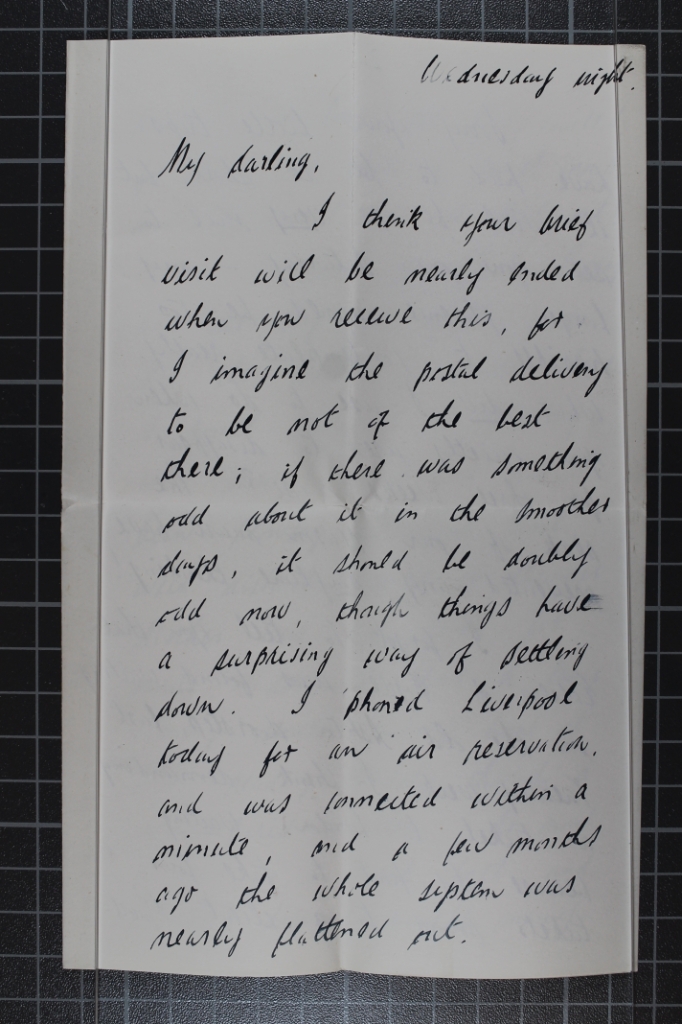 Wednesday night.
My darling,
I think your brief
visit will be nearly ended
when you receive this, for
I imagine the postal delivery
to be not of the best
there; if there was something
odd about it in the smoother
days, it should be doubly
odd now, though things have
a surprising way of settling
down. I phoned Liverpool
today for an air reservation,
and was connected within a
minute, and a few months
ago the whole system was
nearly flattened out.